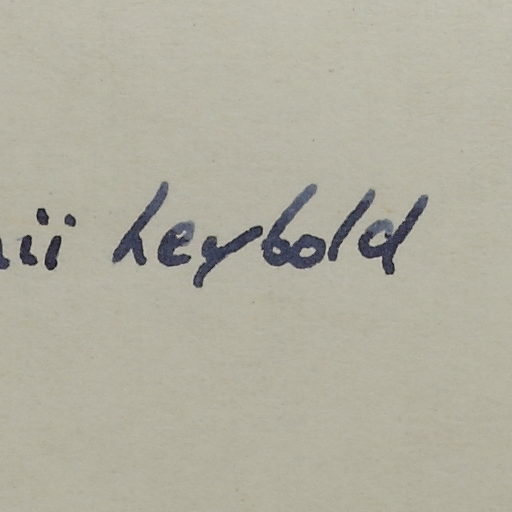 ii Leybold